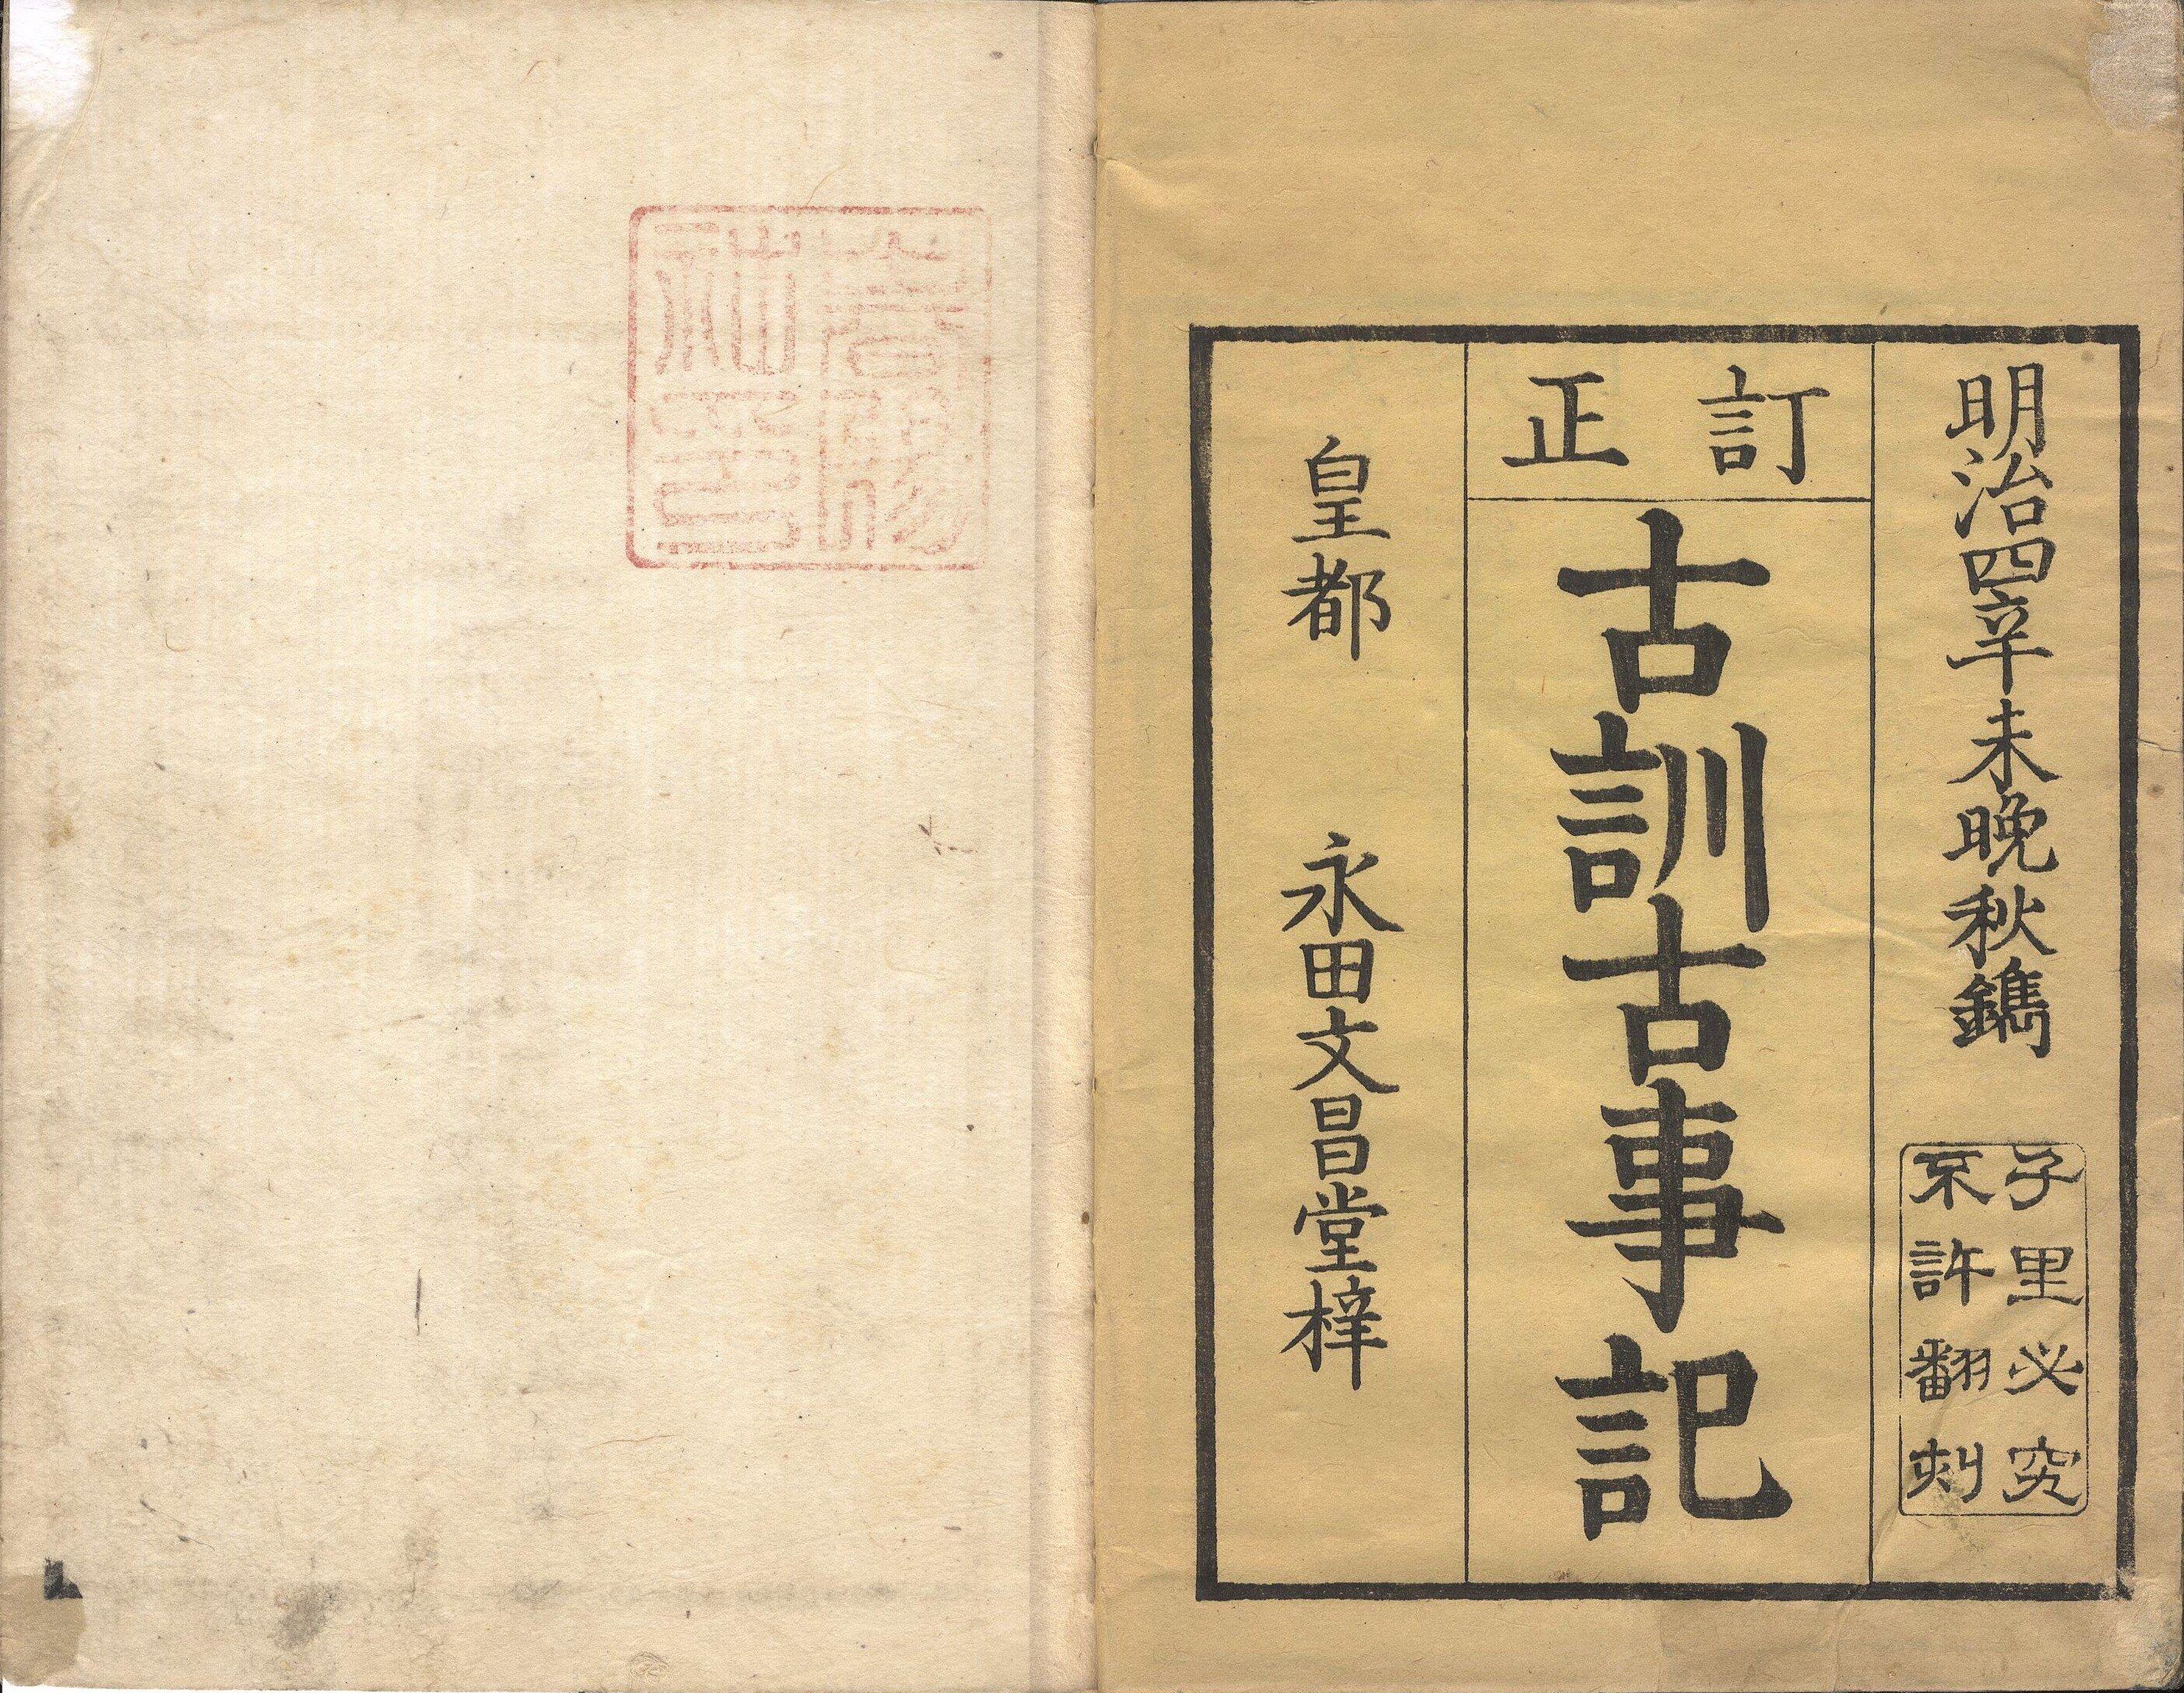 明治四辛未晩秋鐫
子里必究
不許翻刻
訂正
古訓古事記
皇都 永田文昌堂梓